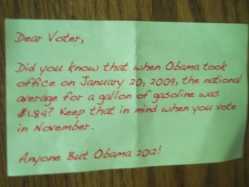 Dear Voter,
Did you know that when Obama took
office on January 20, 2009, the national
average for a gallon of gasoline was
$1.84? Keep that in mind when you vote
in November.
Anyone But Obama 2012!